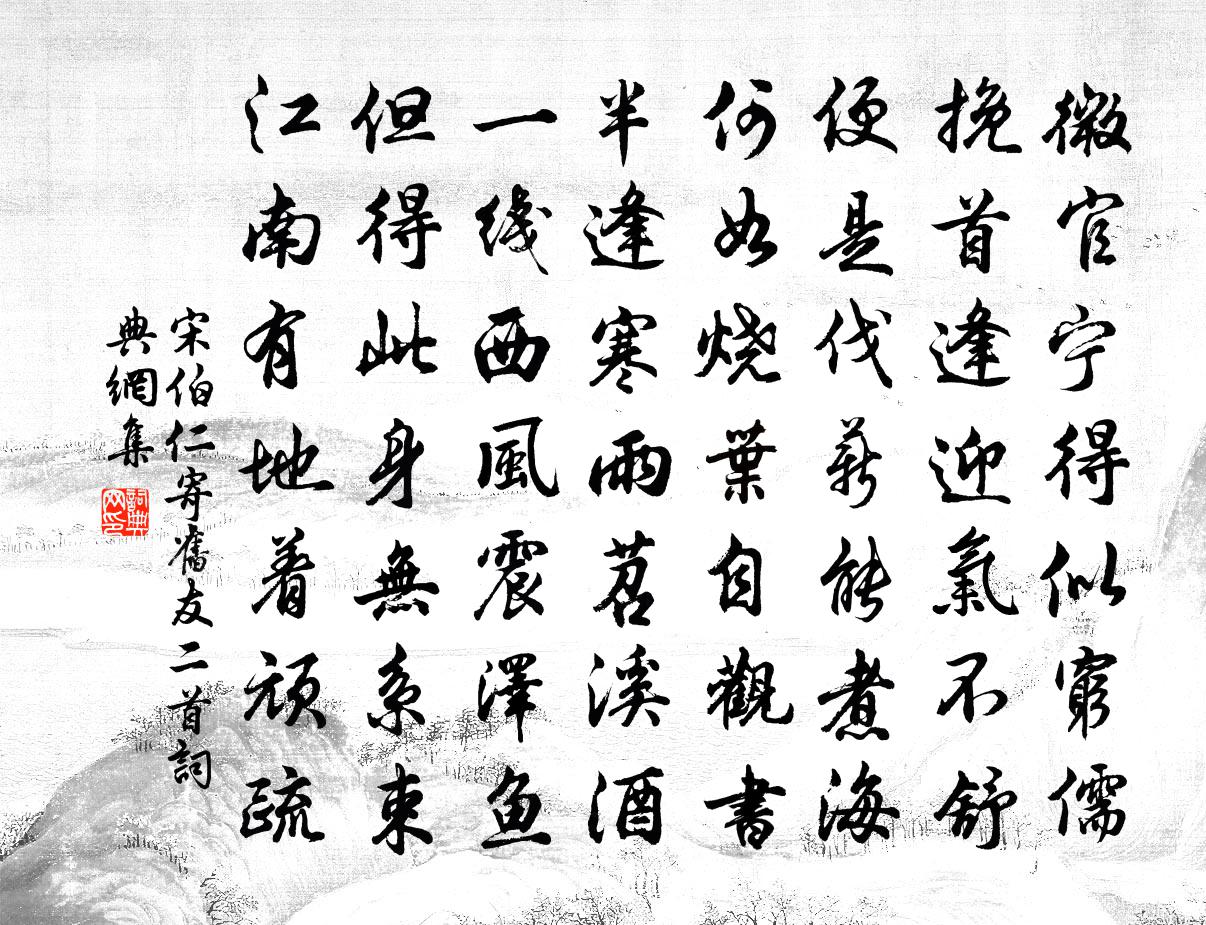 微官宁得似窮儒
挽首逢迎氣不舒
便是伐薪能煮海
何如燒葉自觀書
半逢寒雨苕溪酒
一线西風震澤鱼
但得此身無系束
江南有地着頑疏
宋伯仁寄舊友二首詞
典網集
詞典
网印